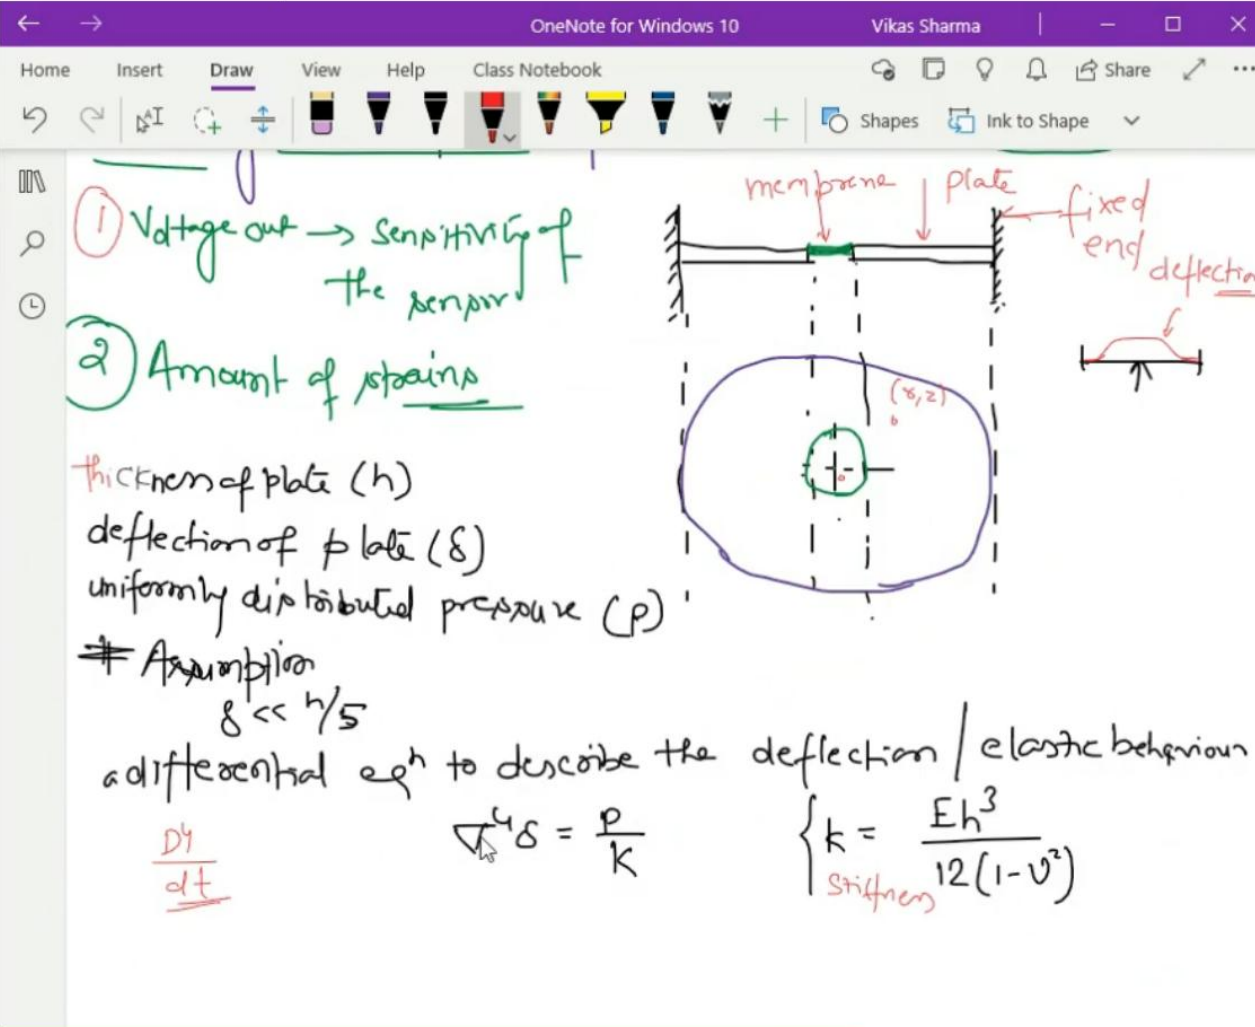 OneNote for Windows 10
Vikas Sharma
Home Insert Draw View Help Class Notebook
Share
Shapes
Ink to Shape
1 Voltage out → Sensitivity of
the sensor
2 Amount of strains
membrane
plate
fixed
end
deflectio
(r,z)
thickness of plate (h)
deflection of plate (δ)
uniformly distributed pressure (p)
* Assumption
δ << h/5
a differential eqn to describe the deflection / elastic behaviour
Dy/dt
∇⁴δ = P/K
{k = Eh³/12(1-υ²)
Stiffness